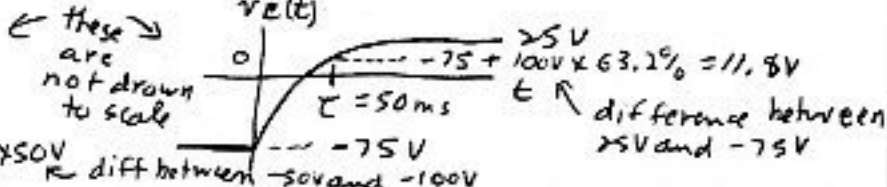 vc(t)
← these →
are
not drawn
to scale
0
25V
-75 + 100V x 63.2% = 11.8V
τ = 50ms
t
↖ difference between
25V and -75V
-75V
x50V
↖ diff between -50V and -100V